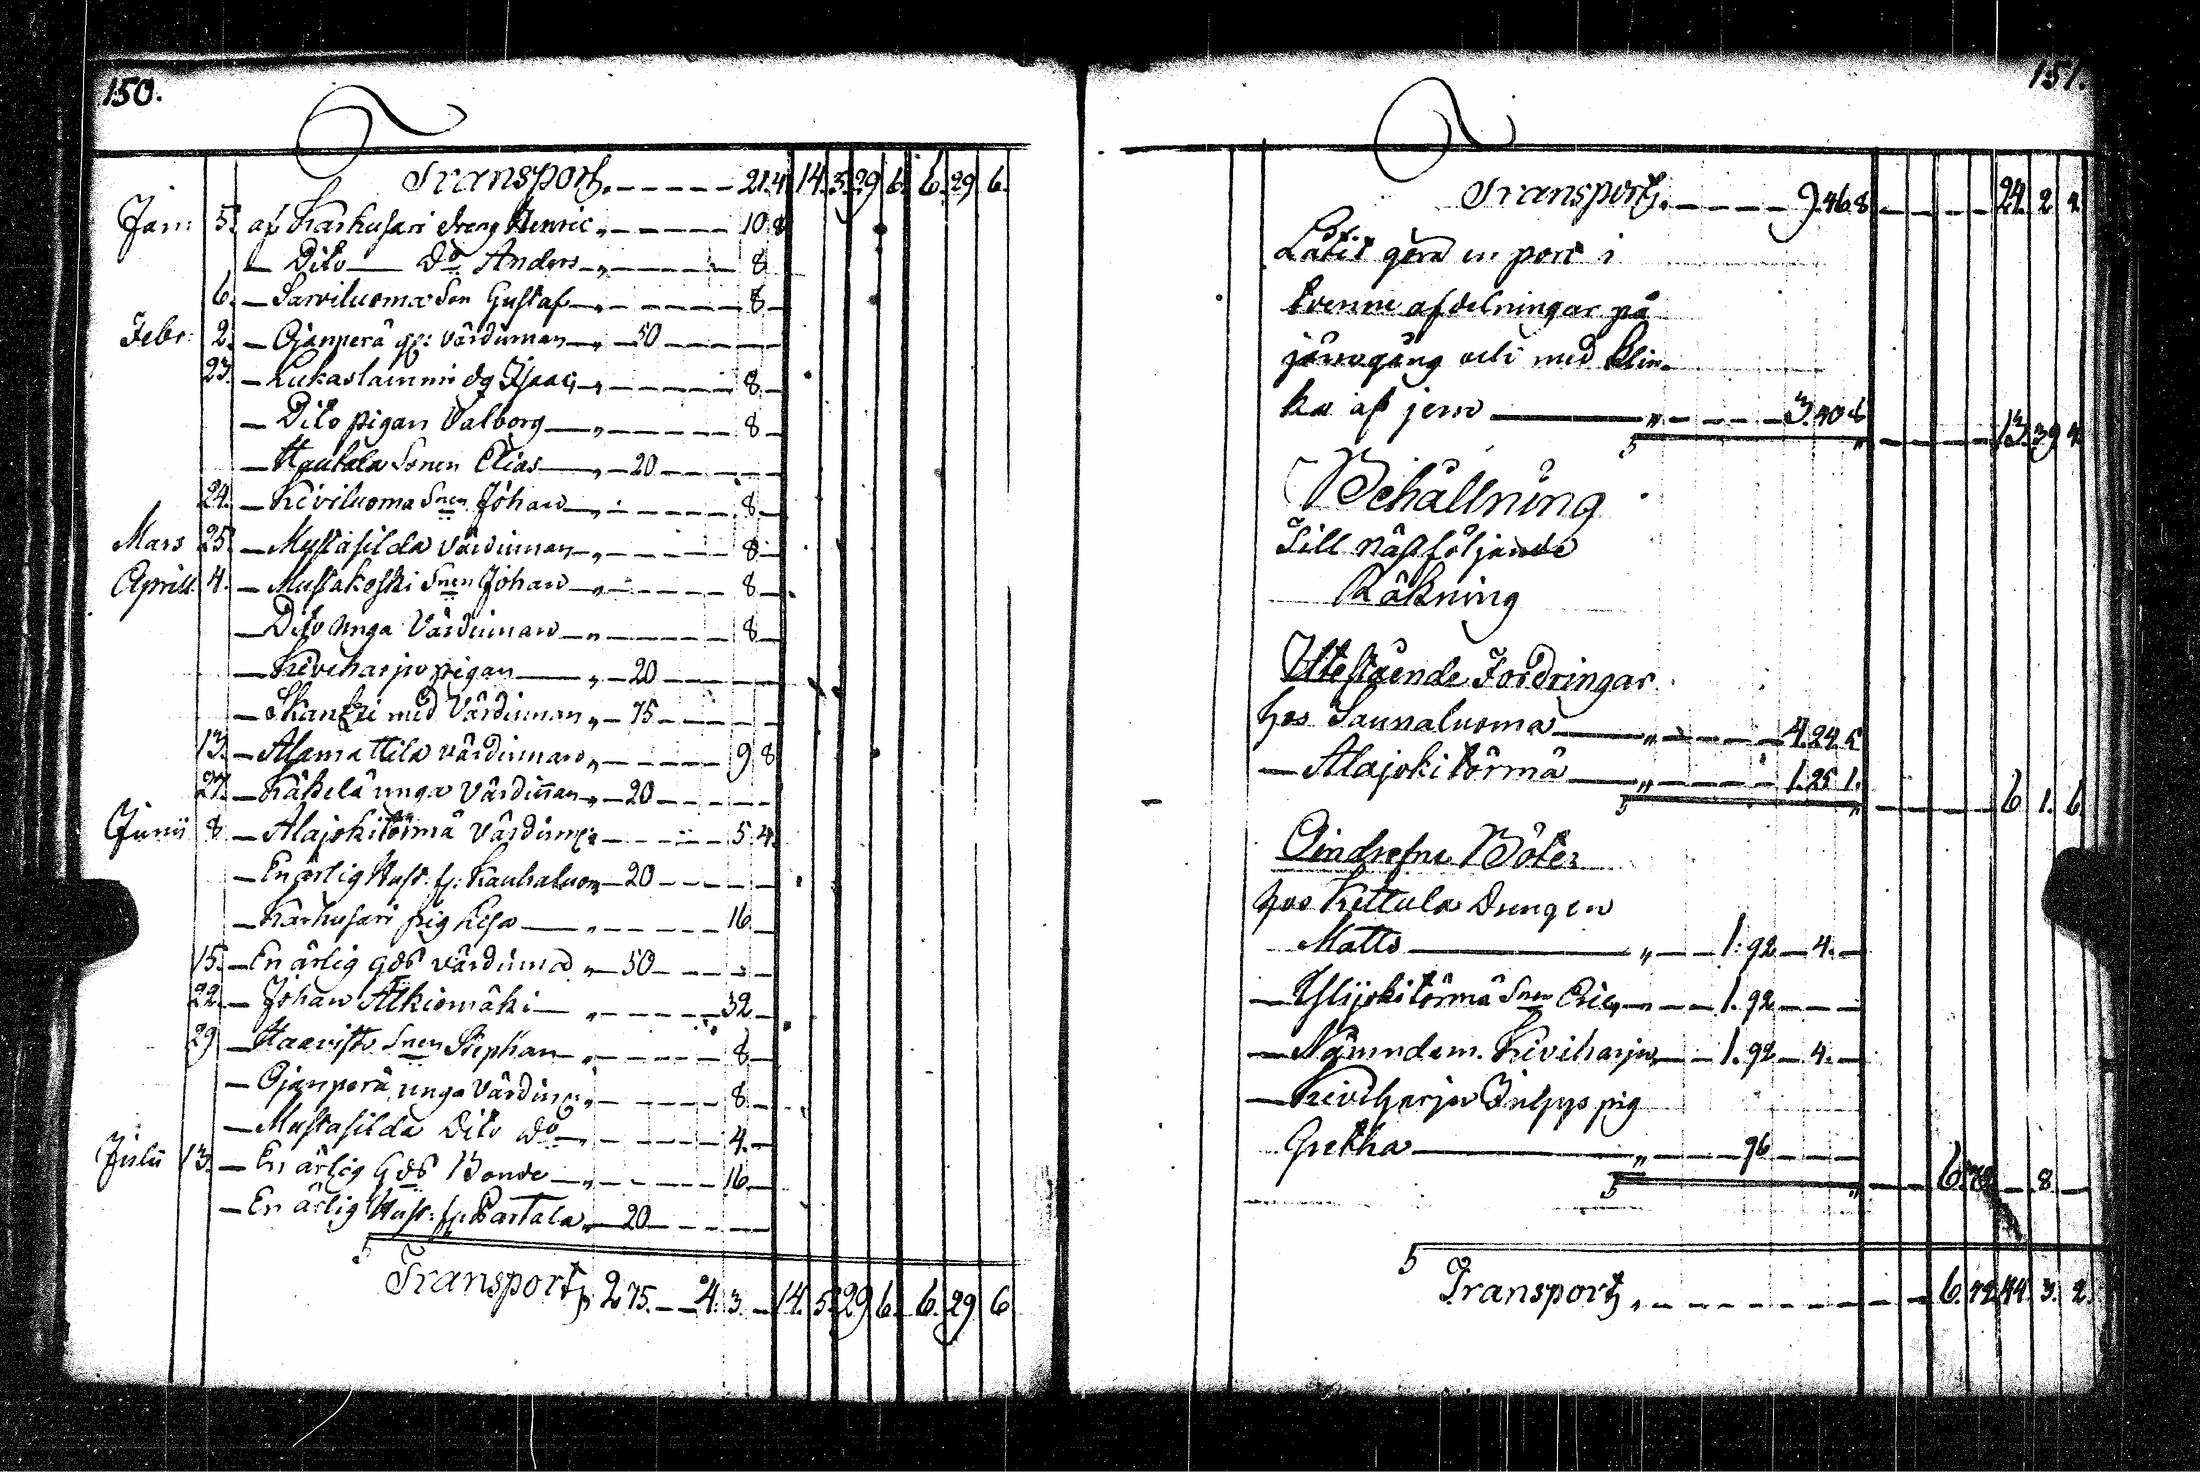 150.
Transport. 21.4. 14. 5. 29 6. 6. 29 6.
Jan: 5. af Karhusari dreng Henric 10. 8
Dito Do Anders 8
6. Sarviluoma Son Gustaf 8
Febr: 2. Ojanperä gl: Värdinnan 50
23. Lukaslammi dg Isaac 8
Dito pigan Valborg 8
Hautala Sonen Elias 20
24. Kiviluoma Snen Johan 8
Mars 25. Mustasilda Värdinnan 8
Aprill 4. Mustakoski Snen Johan 8
Dito Unga Värdinnan 8
Kiviharju pigan 20
Skantzi med Värdinnan 75
13. Alamattila Värdinnan 9 8
27. Käkelä unga Värdinnan 20
Junii 8. Alajokitörmä Värdinna 5. 4.
En ärlig Hust: fr: Kauhaluom 20
Karhusari pig Lisa 16
15. En ärlig gds värdinna 50
22. Johan Alkiomäki 32
29 Haavisto Snen Stephan 8
Ojanperä unga Värdinn: 8
Mustasilda Dito Do 4.
Julii 13. En ärlig Gds Bonde 16
En ärlig Hust: fr: Partala 20
Transport 2 75. 4. 3. 14. 5. 29 6. 6. 29 6
151.
Transport. 9.46.8 24. 2 4.
Låtit göra en port i
tvenne afdelningar på
jernogång och med klin-
ka af jern 3.40.6
13. 39 4.
Behållning
Till Nästföljande
Räkning
Utestående Fordringar
hos Saunaluoma 4.24.5
Alajokitörmä 1.25 1.
6 1. 6
Oindrefne Böter
hos Kettula Drengen
Matts 1: 92 4.
Ylijokitörmä Snen Eric 1. 92
Nämndem. Kiviharju 1. 92 4.
Kiviharju pig
Gretha 96
6. 72 8
Transport 6. 72 44. 3. 2.